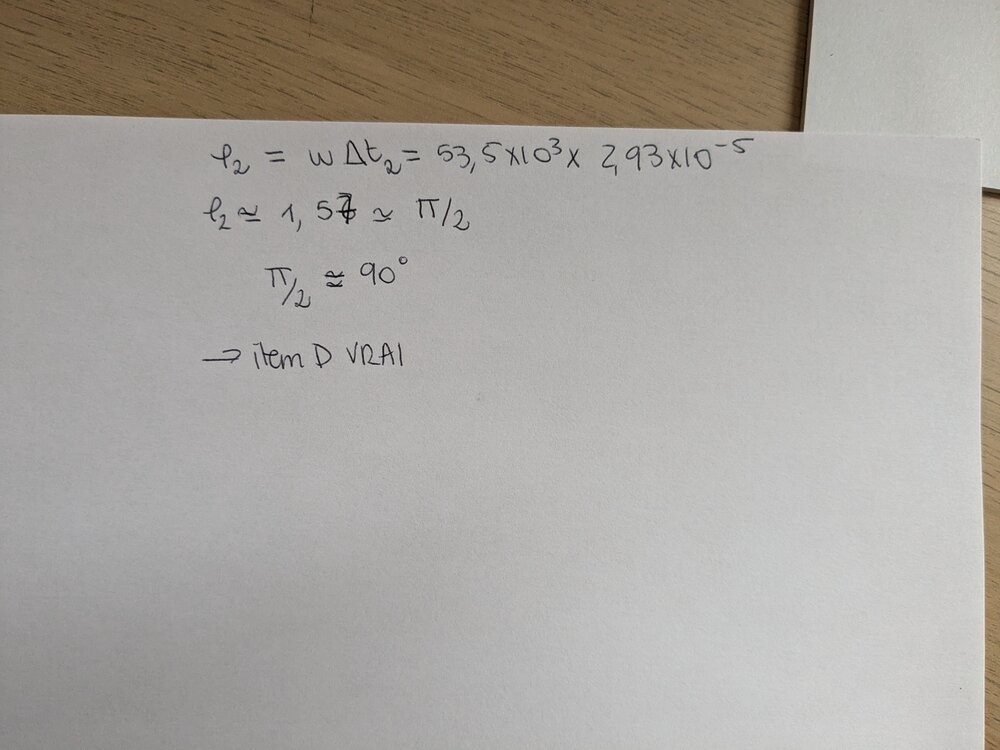 φ₂ = w Δt₂ = 53,5×10³ × 2,93×10⁻⁵
φ₂ ≃ 1,57 ≃ π/2
π/2 ≅ 90°
→ item D VRAI